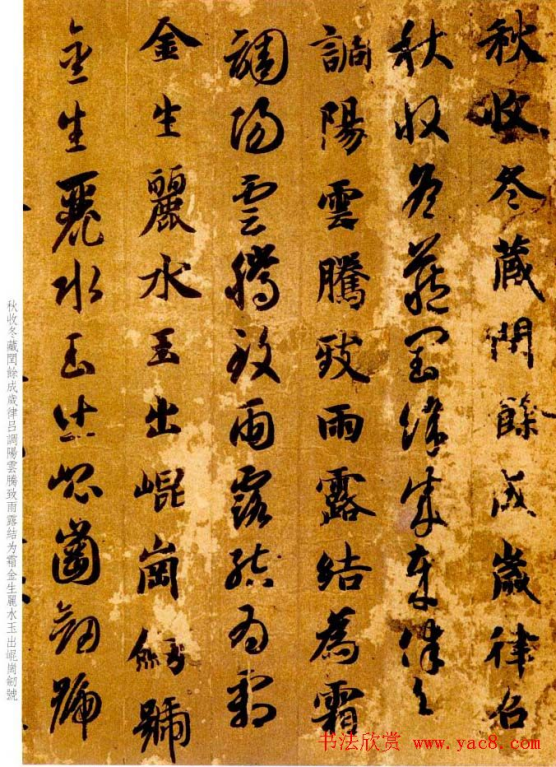 秋收冬蔵閏餘成歲律呂
秋收冬蔵閏餘成歲律呂
調陽雲騰致雨露結為霜
調陽雲騰致雨露結為霜
金生麗水玉出崐崗劒號
金生麗水玉出崐崗劒號
秋收冬藏閏餘成歲律呂調陽雲騰致雨露結为霜金生麗水玉出崐崗劒號
书法欣赏 www.yac8.com